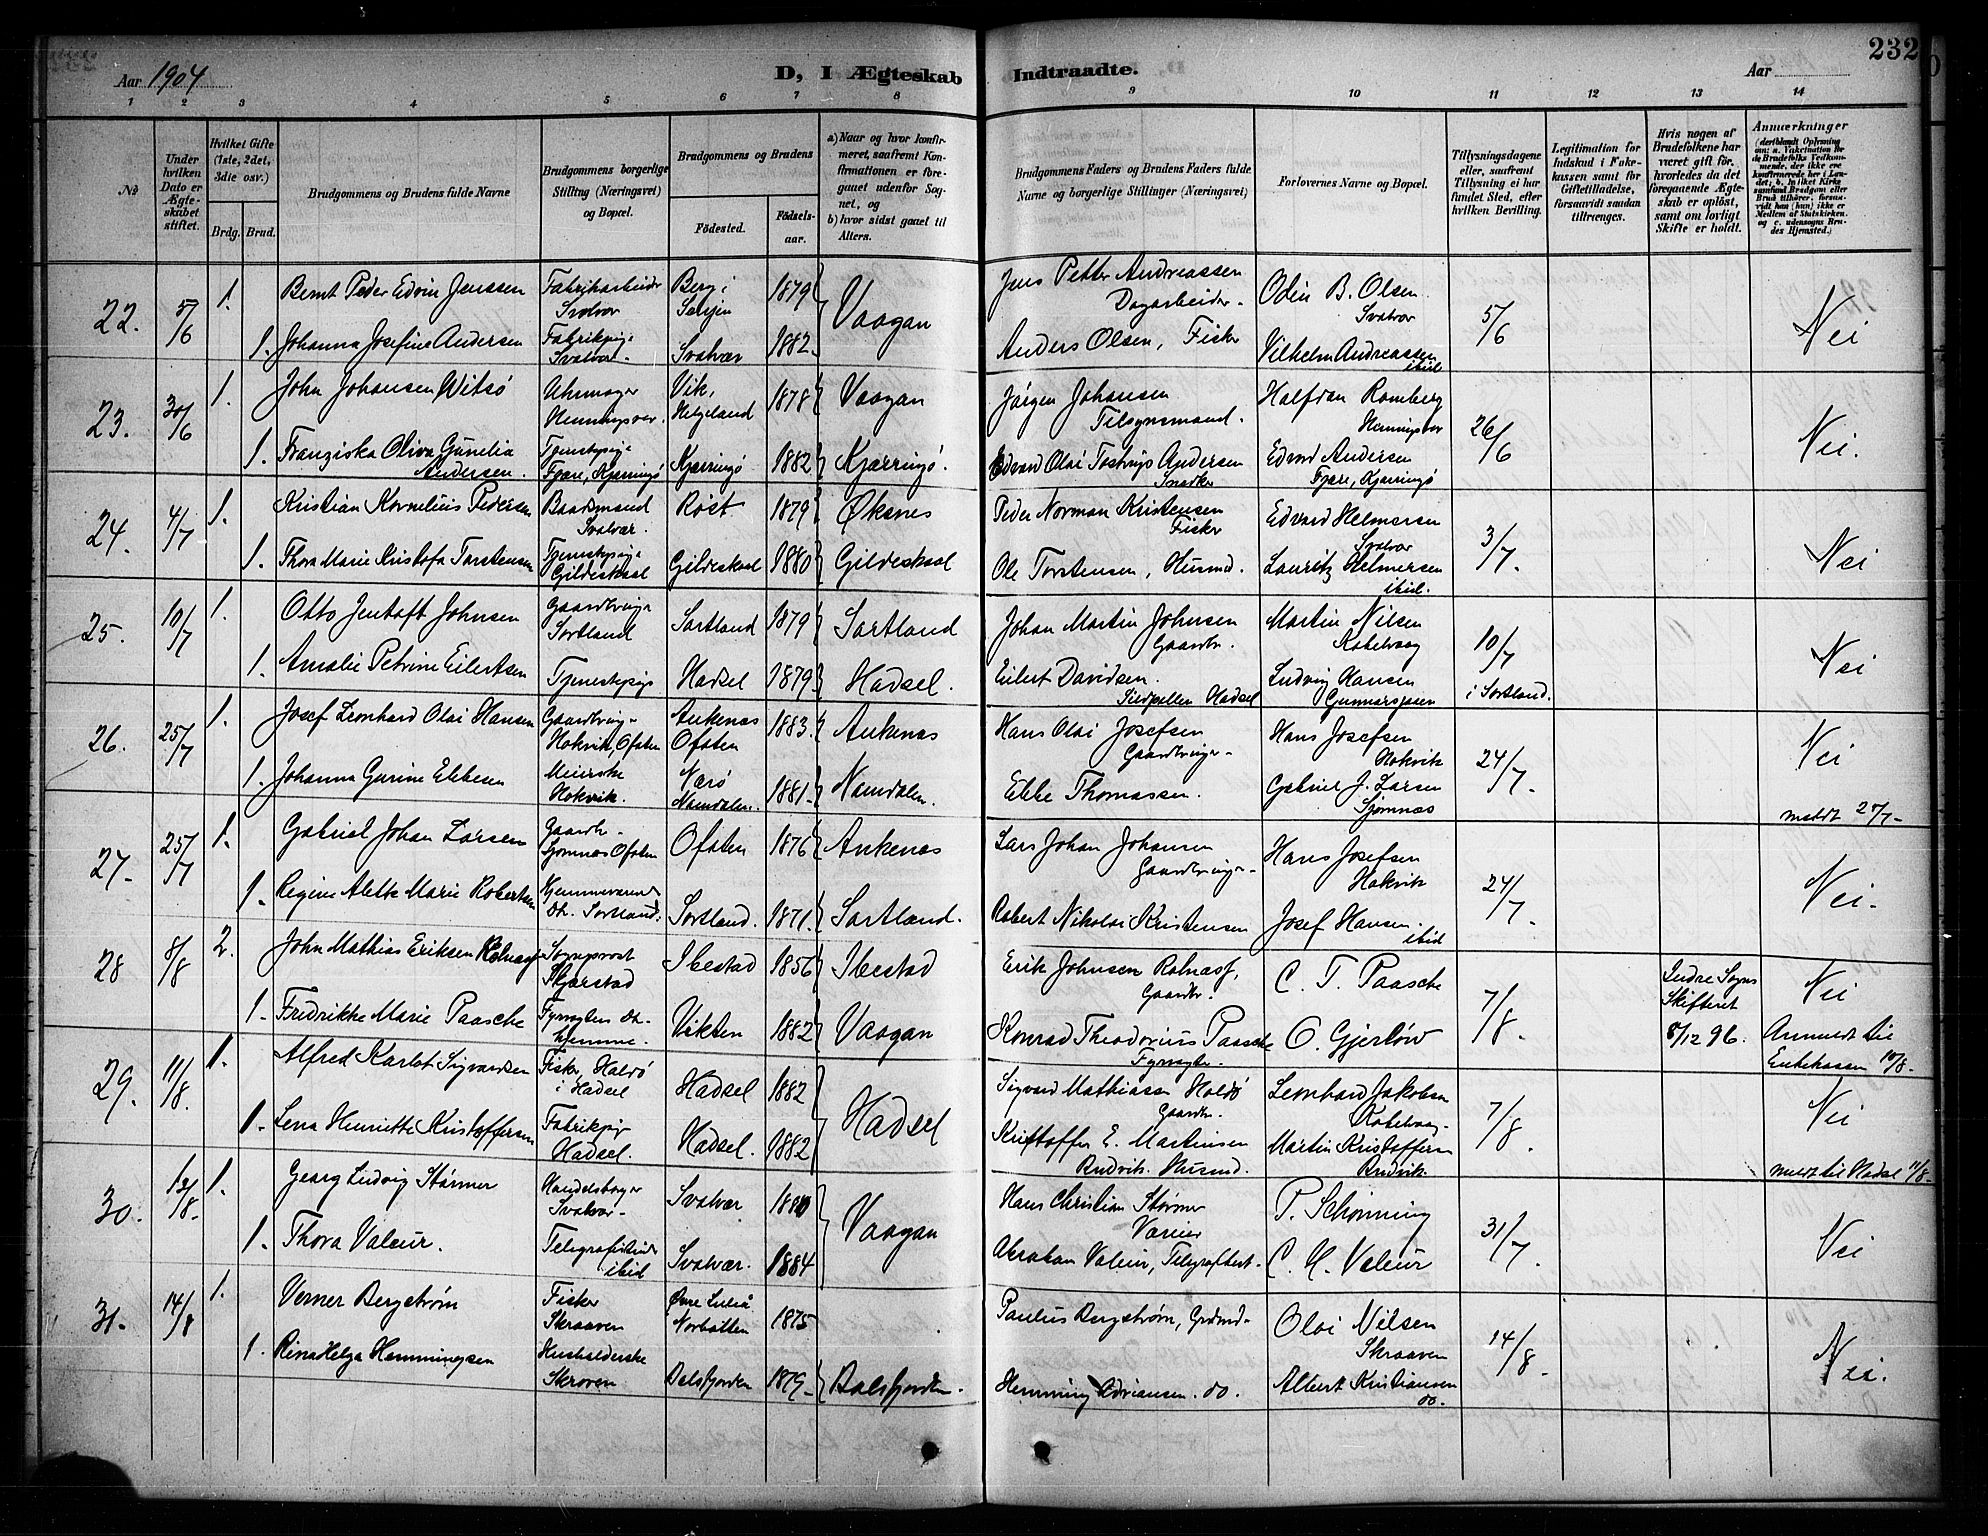 232
Aar 1904
D, I Ægteskab Indtraadte.
Aar
1 2 3 4 5 6 7 8 9 10 11 12 13 14
No
Under hvilken Dato er Ægteskabet stiftet.
Hvilket Gifte (1ste, 2det, 3die osv.)
Brdg. Brud.
Brudgommens og Brudens fulde Navne
Brudgommens borgerlige Stilling (Næringsvei) og Bopæl.
Brudgommens og Brudens
Fødested.
Fødselsaar.
a) Naar og hvor konfirmeret, saafremt Konfirmationen er foregaaet udenfor Sognet, og
b) hvor sidst gaaet til Alters.
Brudgommens Faders og Brudens Faders fulde Navne og borgerlige Stillinger (Næringsvei)
Forlovernes Navne og Bopæl.
Tillysningsdagene eller, saafremt Tillysning ei har fundet Sted, efter hvilken Bevilling.
Legitimation for Indskud i Enkekassen samt for Giftetilladelse, forsaavidt saadan tiltrænges.
Hvis nogen af Brudefolkene har været gift før, hvorledes da det foregaaende Ægteskab er opløst, samt om lovligt Skifte er holdt.
Anmærkninger
22. 5/6 1. Bernt Peder Edvin Jenssen Fabrikarbeider Svolvær Berg i Senjen 1879 Vaagan Jens Petter Andreassen Dagarbeider. Odin B. Olsen Svolvær 5/6 Nei
1. Johanna Josefine Andersen Fabrikpige Svolvær. Svolvær 1882. Anders Olsen, Fisker Vilhelm Andreassen ibid
23. 30/6 1. John Johansen Witsø Uhrmager Henningsvær. Vik, Helgeland 1878 Vaagan Jørgen Johansen Tilsynsmand. Halfdan Romberg Henningsvær 26/6 Nei.
1. Franziska Oliva Gunelia Andersen. Tjenestepige Fjære, Kjerringø Kjerringø 1882 Kjerringø. Edvard Olai Tostrup Andersen Snedker Edvard Andersen Fjære, Kjerringø
24. 4/7 1. Kristian Kornelius Pedersen Baadsmand Svolvær. Røst 1879 Øksnes Peder Norman Kristensen Fisker Edvard Helmersen Svolvær 3/7. Nei
1. Thora Marie Kristofa Torstensen Tjenestepige Gildeskaal Gildeskaal 1880 Gildeskaal Ole Torstensen, Husmd. Lauritz Helmersen ibid.
25. 10/7 1. Otto Jentoft Johnsen Gaardbruger Sortland Sortland 1879 Sortland Johan Martin Johnsen Gaardbr. Martin Nilsen Kabelvaag 10/7 i Sortland. Nei
1. Amalie Petrine Eilertsen Tjenestepige Hadsel 1879 Hadsel. Eilert Davidsen. Hadsel Ludvig Hansen
26. 25/7 1. Josef Leonhard Olai Hansen Gaardbruger Hokvik, Ofoten Ankenæs Ofoten 1883. Ankenæs Hans Olai Josefsen Gaardbruger. Hans Josefsen Hokvik 24/7. Nei
1. Johanna Gurine Ebbesen Meierske Hokvik. Nærø Namdalen. 1881. Namdalen. Ebbe Thomassen. Gabriel J. Larsen Sjomnæs meldt 27/7.
27. 25/7 1. Gabriel Johan Larsen Gaardb. Sjomnæs Ofoten Ofoten 1876 Ankenæs Lars Johan Johansen Gaardbruger. Hans Josefsen Hokvik 24/7. Nei.
1. Regine Aletke Marie Robertsen Hjemmeværende Dtr. Sortland. Sortland. 1871. Sortland. Robert Nikolai Kristensen Josef Hansen. ibid
28 8/8 2. John Mathias Eriksen Sogneprest Skjerstad Ibestad 1856 Ibestad Erik Johnsen Gaardbr. C. T. Paasche 7/8. Skiftet 8/12 96. Nei
1. Fredrikke Marie Paasche Fyrvogters Dtr. hjemme. Vikten 1882 Vaagan Konrad Theodorius Paasche Fyrvogter. O. Gjerløw Anmeldt til Enkekassen 10/8.
29. 11/8. 1. Alfred Karlot Sigvardsen Fisker, Haldø i Hadsel Hadsel 1882 Hadsel Sigvard Mathiassen Haldø Gaardbr. Leonhard Jakobsen Kabelvaag. 7/8. Nei
1. Lena Henriette Kristoffersen Fabrikpige Hadsel. Hadsel. 1882 Kristoffer E. Martinsen Husmd. Martin Kristoffersen meldt til Hadsel 11/8.
30. 12/8. 1. Georg Ludvig Størmer Handelsborger Svolvær. Svolvær 1880 Vaagan Hans Christian Størmer P. Schønning 31/7. Nei
1. Thora Valeur. Telegrafistinde ibid Svolvær. 1884 Abraham Valeur, Telegrafbest. C. H. Valeur
31. 14/8 1. Verner Bergstrøm Fisker Skraaven Øvre Luleå Norbotten 1875 Paulus Bergstrøm, Grdmd. Olai Nilsen Skraaven 14/8. Nei.
1. Rina Helga Hemmingsen Husholderske Skroven Balsfjorden 1879. Balsfjorden. Hemming Adriansen. do. Albert Kristiansen do.